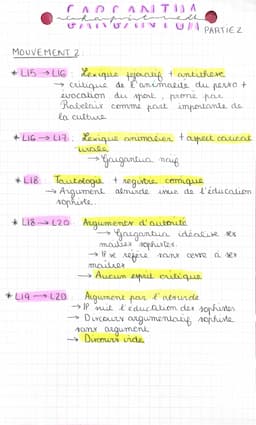 GARGANTUA
PARTIE 2
MOUVEMENT 2 :
* L15 → L16 : Lexique péjoratif + antithèse
→ critique de l'animalité du perso +
évocation du sport, proné par
Rabelais comme part importante de
la culture
* L16 → L17 : Lexique animalier + aspect carica
tural
→ Gargantua naïf
* L18 : Tautologie + registre comique
→ Argument absurde issue de l'éducation
sophiste.
* L18 → L20 Arguments d'autorité
→ Gargantua idéalise ses
maîtres sophistes.
→ Il se réfère sans cesse à ses
maîtres
→ Aucun esprit critique
* L19 → L20 Argument par l'absurde
→ Il suit l'éducation des sophistes
→ Discours argumentatif sophiste
sans argument
→ Discours vide